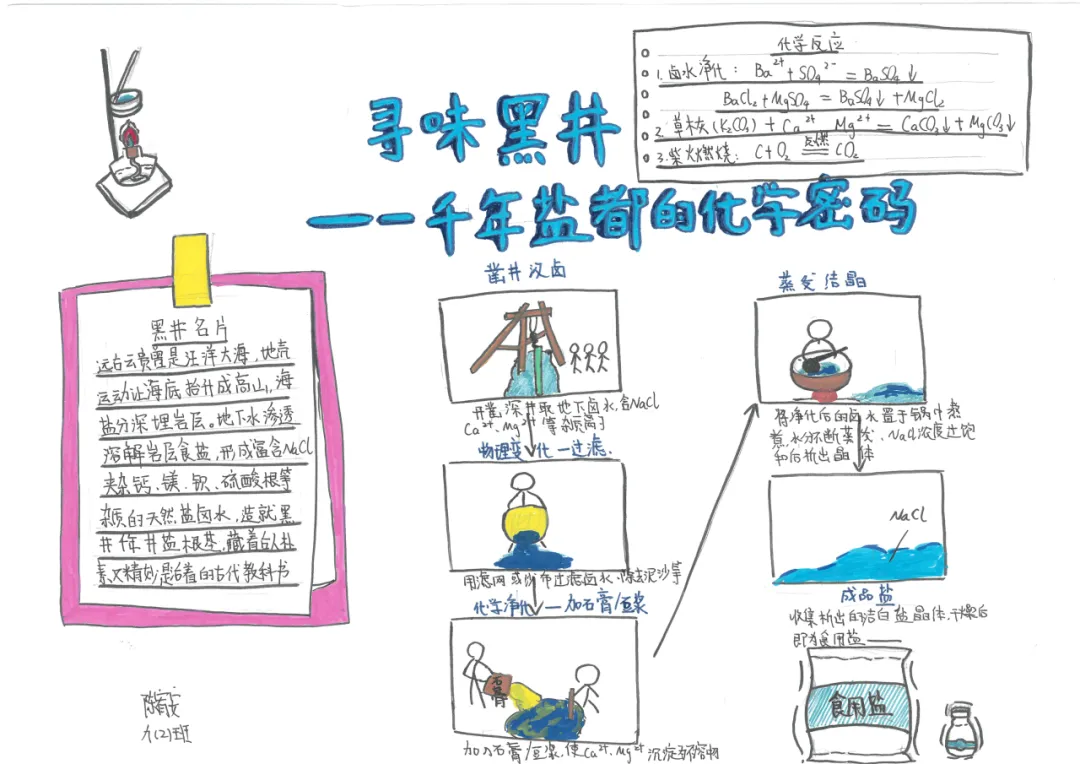 寻味黑井
——千年盐都的化学密码
化学反应
1.卤水净化：Ba²⁺+SO₄²⁻=BaSO₄↓
BaCl₂+MgSO₄=BaSO₄↓+MgCl₂
2.草木灰(K₂CO₃)+Ca²⁺ Mg²⁺=CaCO₃↓+MgCO₃↓
3.柴火燃烧：C+O₂ 点燃 CO₂
黑井名片
远古云贵是汪洋大海，地壳
运动让海底抬升成高山，海
盐分深埋岩层。地下水渗透
溶解岩层食盐，形成富含NaCl
夹杂钙、镁、钡、硫酸根等
杂质的天然盐卤水，造就黑
井千年井盐根基，藏着古人朴
素又精妙是活着的古代教科书
凿井汲卤
开凿深井取地下卤水，含NaCl
Ca²⁺、Mg²⁺等杂质离子
物理变化—过滤
用滤网或纱布过滤卤水，除去泥沙等
化学净化—加石膏/豆浆
石膏
加入石膏/豆浆，使Ca²⁺、Mg²⁺沉淀
蒸发结晶
将净化后的卤水置于锅中蒸
煮，水分不断蒸发、NaCl浓度达饱
和后析出晶体
NaCl
成品盐
收集析出的洁白盐晶体，干燥后
即为食用盐
食用盐
八(2)班